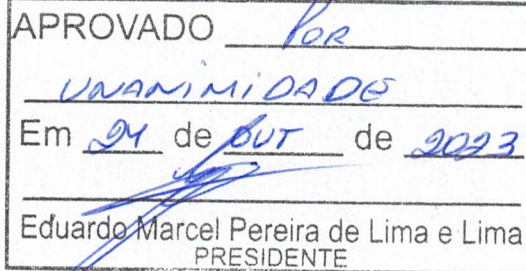 APROVADO Por
UNANIMIDADE
Em 24 de OUT de 2023
Eduardo Marcel Pereira de Lima e Lima
PRESIDENTE